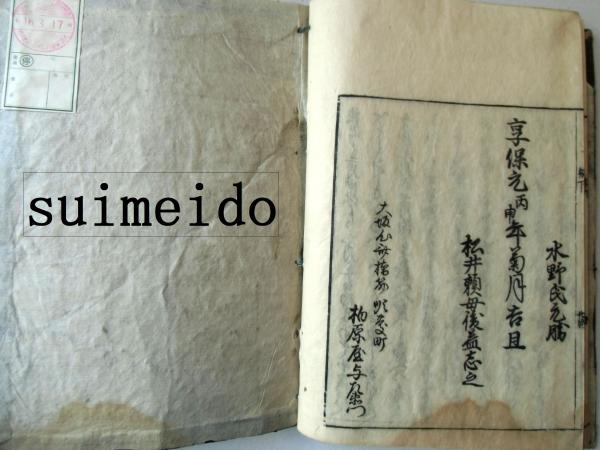 水野氏元勝
享保元丙申年菊月吉旦
松井頼母後益志之
大坂心斎橋筋順慶町
柏原屋与左衛門
suimeido
16.3.17